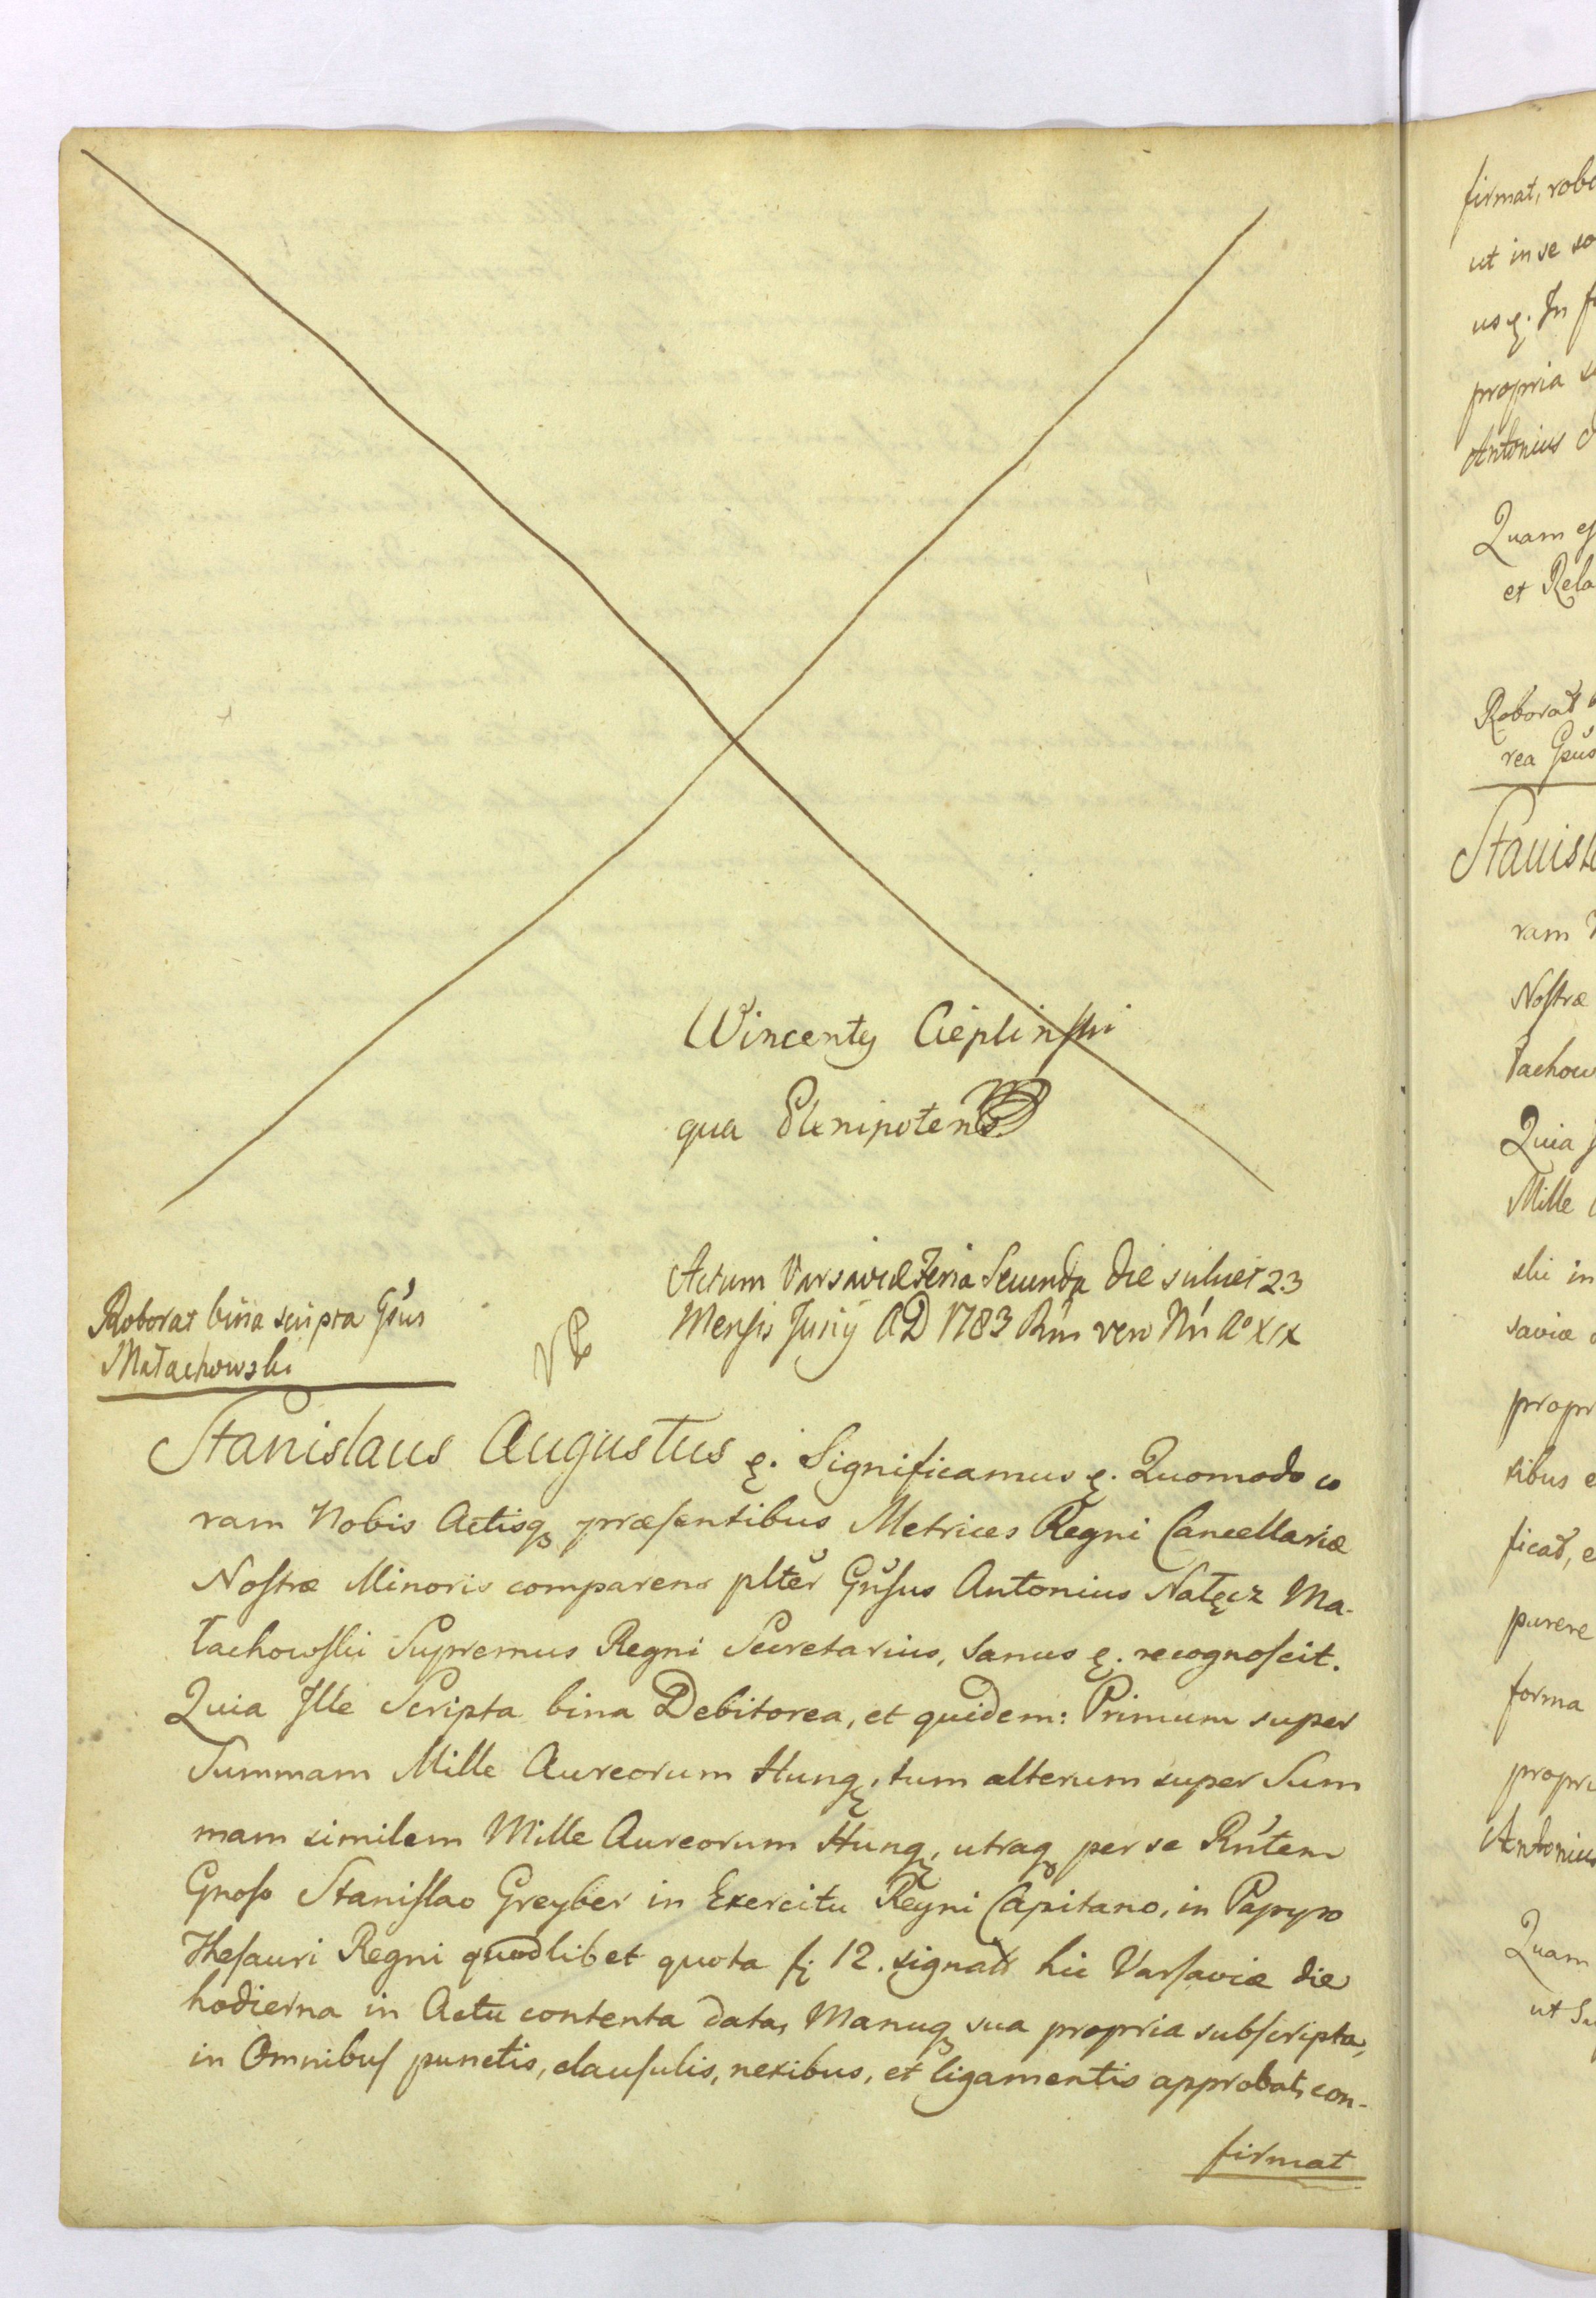 Wincenty Cieplinſki
qua Plenipotens
Actum Varsaviæ Feria Secunda die scilicet 23
Mensis Junij AD 1783 Rñi vero Nri Aº XIX
Roborat bina scripta Gsus
Małachowski
Stanislaus Augustus ę. Significamus ę. Quomodo co
ram Nobis Actisq præſentibus Metrices Regni Cancellariæ
Noſtræ Minoris comparens plter Gnſus Antonius Nałęcz Ma-
łachowſki Supremus Regni Secretarius, sanus ę. recognoſcit.
Quia Ille Scripta bina Debitorea, et quidem: Primum super
Summam Mille Aureorum Hung, tum alterum super Sum
mam similem Mille Aureorum Hung, utraq per se Rñtem
Gnoſo Staniſlao Greyber in Exercitu Regni Capitano, in Papyro
Theſauri Regni quodlibet quota fi 12. signat hic Varſaviæ die
hodierna in Actu contenta data, Manuq sua propria subſcripta,
in Omnibuſ punctis, clauſulis, nexibus, et ligamentis approbat, con-
firmat
firmat, robo
ut in se so
usę. In f
propria s
Antonius
Quam
et Rela
Roborat b
rea Gsus
Stanisl
ram
Noſtræ
łachow
Quia
Mille
ski in
saviæ
propr
ribus e
ficat, e
purere
forma
propri
Antonius
Quam
ut Su